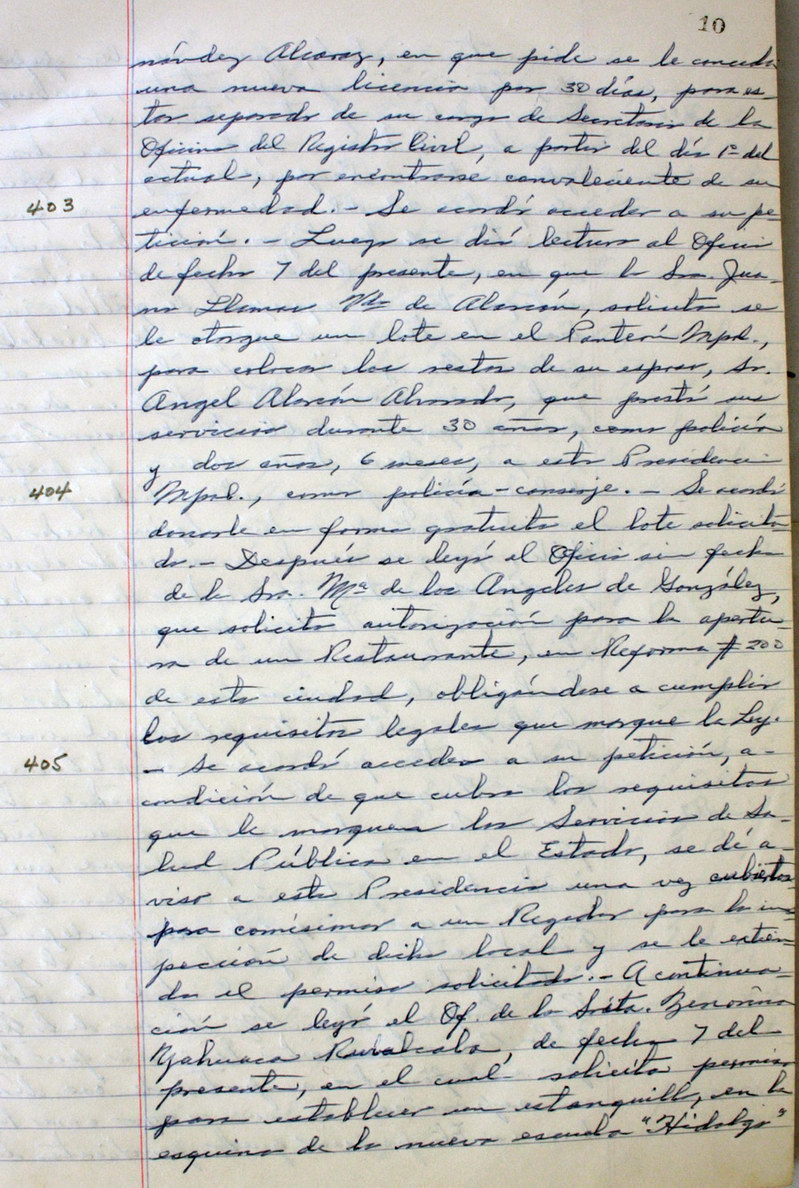 10
nández Alcaraz, en que pide se le conceda
una nueva licencia por 30 días, para es-
tar separado de su cargo de Secretario de la
Oficina del Registro Civil, a partir del día 1º del
actual, por encontrarse convaleciente de su
403
enfermedad.- Se acordó acceder a su pe
tición.- Luego se dió lectura al Oficio
de fecha 7 del presente, en que la Sra. Jua-
na Llamas Vda de Alarcón, solicita se
le otorgue un lote en el Panteón Mpal.,
para colocar los restos de su esposo, Sr.
Angel Alarcón Alvarado, que prestó sus
servicios durante 30 años, como policía
y dos años, 6 meses, a esta Presidencia
404
Mpal., como policía-conserje.- Se acordó
donarle en forma gratuita el lote solicita-
do.- Después se leyó el Oficio sin fecha
de la Sra. Mª de los Angeles de González,
que solicita autorización para la apertu-
ra de un Restaurante, en Reforma # 200
de esta ciudad, obligándose a cumplir
los requisitos legales que marque la Ley.
405
- Se acordó acceder a su petición, a-
condición de que cubra los requisitos
que le marquen los Servicios de Sa-
lud Pública en el Estado, se dé a-
viso a esta Presidencia una vez cubiertos
para comisionar a un Regidor para la ins-
pección de dicho local y se le extien-
da el permiso solicitado.- A continua-
ción se leyó el Of. de la Srita. Zenorina
Yahuaca Ruvalcaba, de fecha 7 del
presente, en el cual solicita permiso
para establecer un estanquillo, en la
esquina de la nueva escuela "Hidalgo"